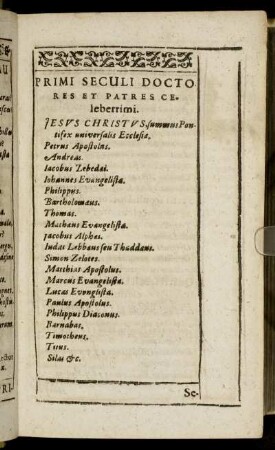 PRIMI SECULI DOCTO
RES ET PATRES CE-
leberrimi.
JESVS CHRISTVS summus Pon-
tifex universalis Ecclesiæ.
Petrus Apostolus.
Andreas.
Iacobus Zebedæi.
Iohannes Evangelista.
Philippus.
Bartholomæus.
Thomas.
Matthæus Evangelista.
Jacobus Alphæi.
Iudas Lebbæus seu Thaddæus.
Simon Zelotes.
Matthias Apostolus.
Marcus Evangelista.
Lucas Evengelista.
Paulus Apostolus.
Philippus Diaconus.
Barnabas,
Timotheus,
Titus.
Silas &c.
Se-